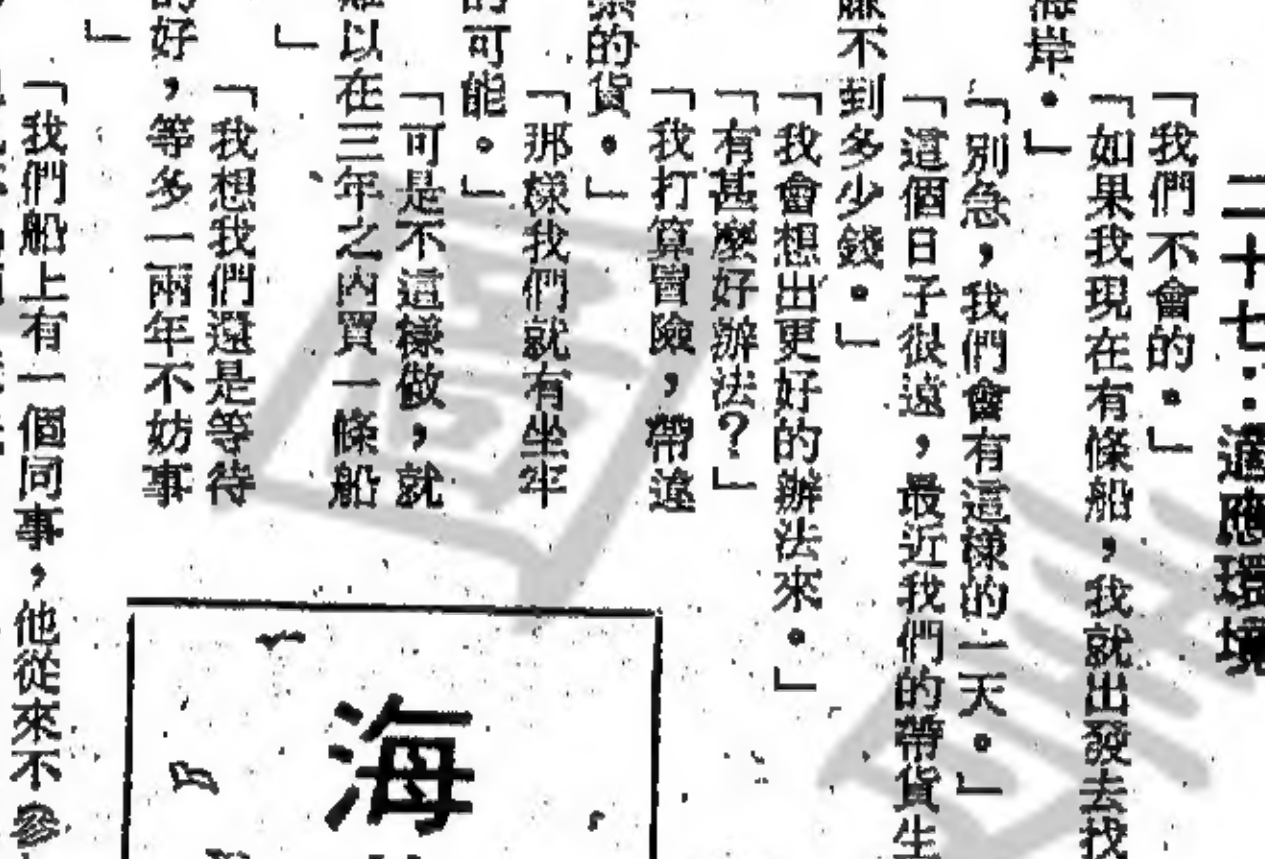 二十七：適應環境
「我們不會的。」
「如果我現在有條船，我就出發去找
海岸。」
「別急，我們會有這樣的一天。」
「這個日子很遠，最近我們的帶貨生
賺不到多少錢。」
「我會想出更好的辦法來。」
「有甚麼好辦法？」
「我打算冒險，帶違
禁的貨。」
「那樣我們就有坐牢
的可能。」
「可是不這樣做，就
難以在三年之內買一條船
」
「我想我們還是等待
的好，等多一兩年不妨事
」
「我們船上有一個同事，他從來不參
海